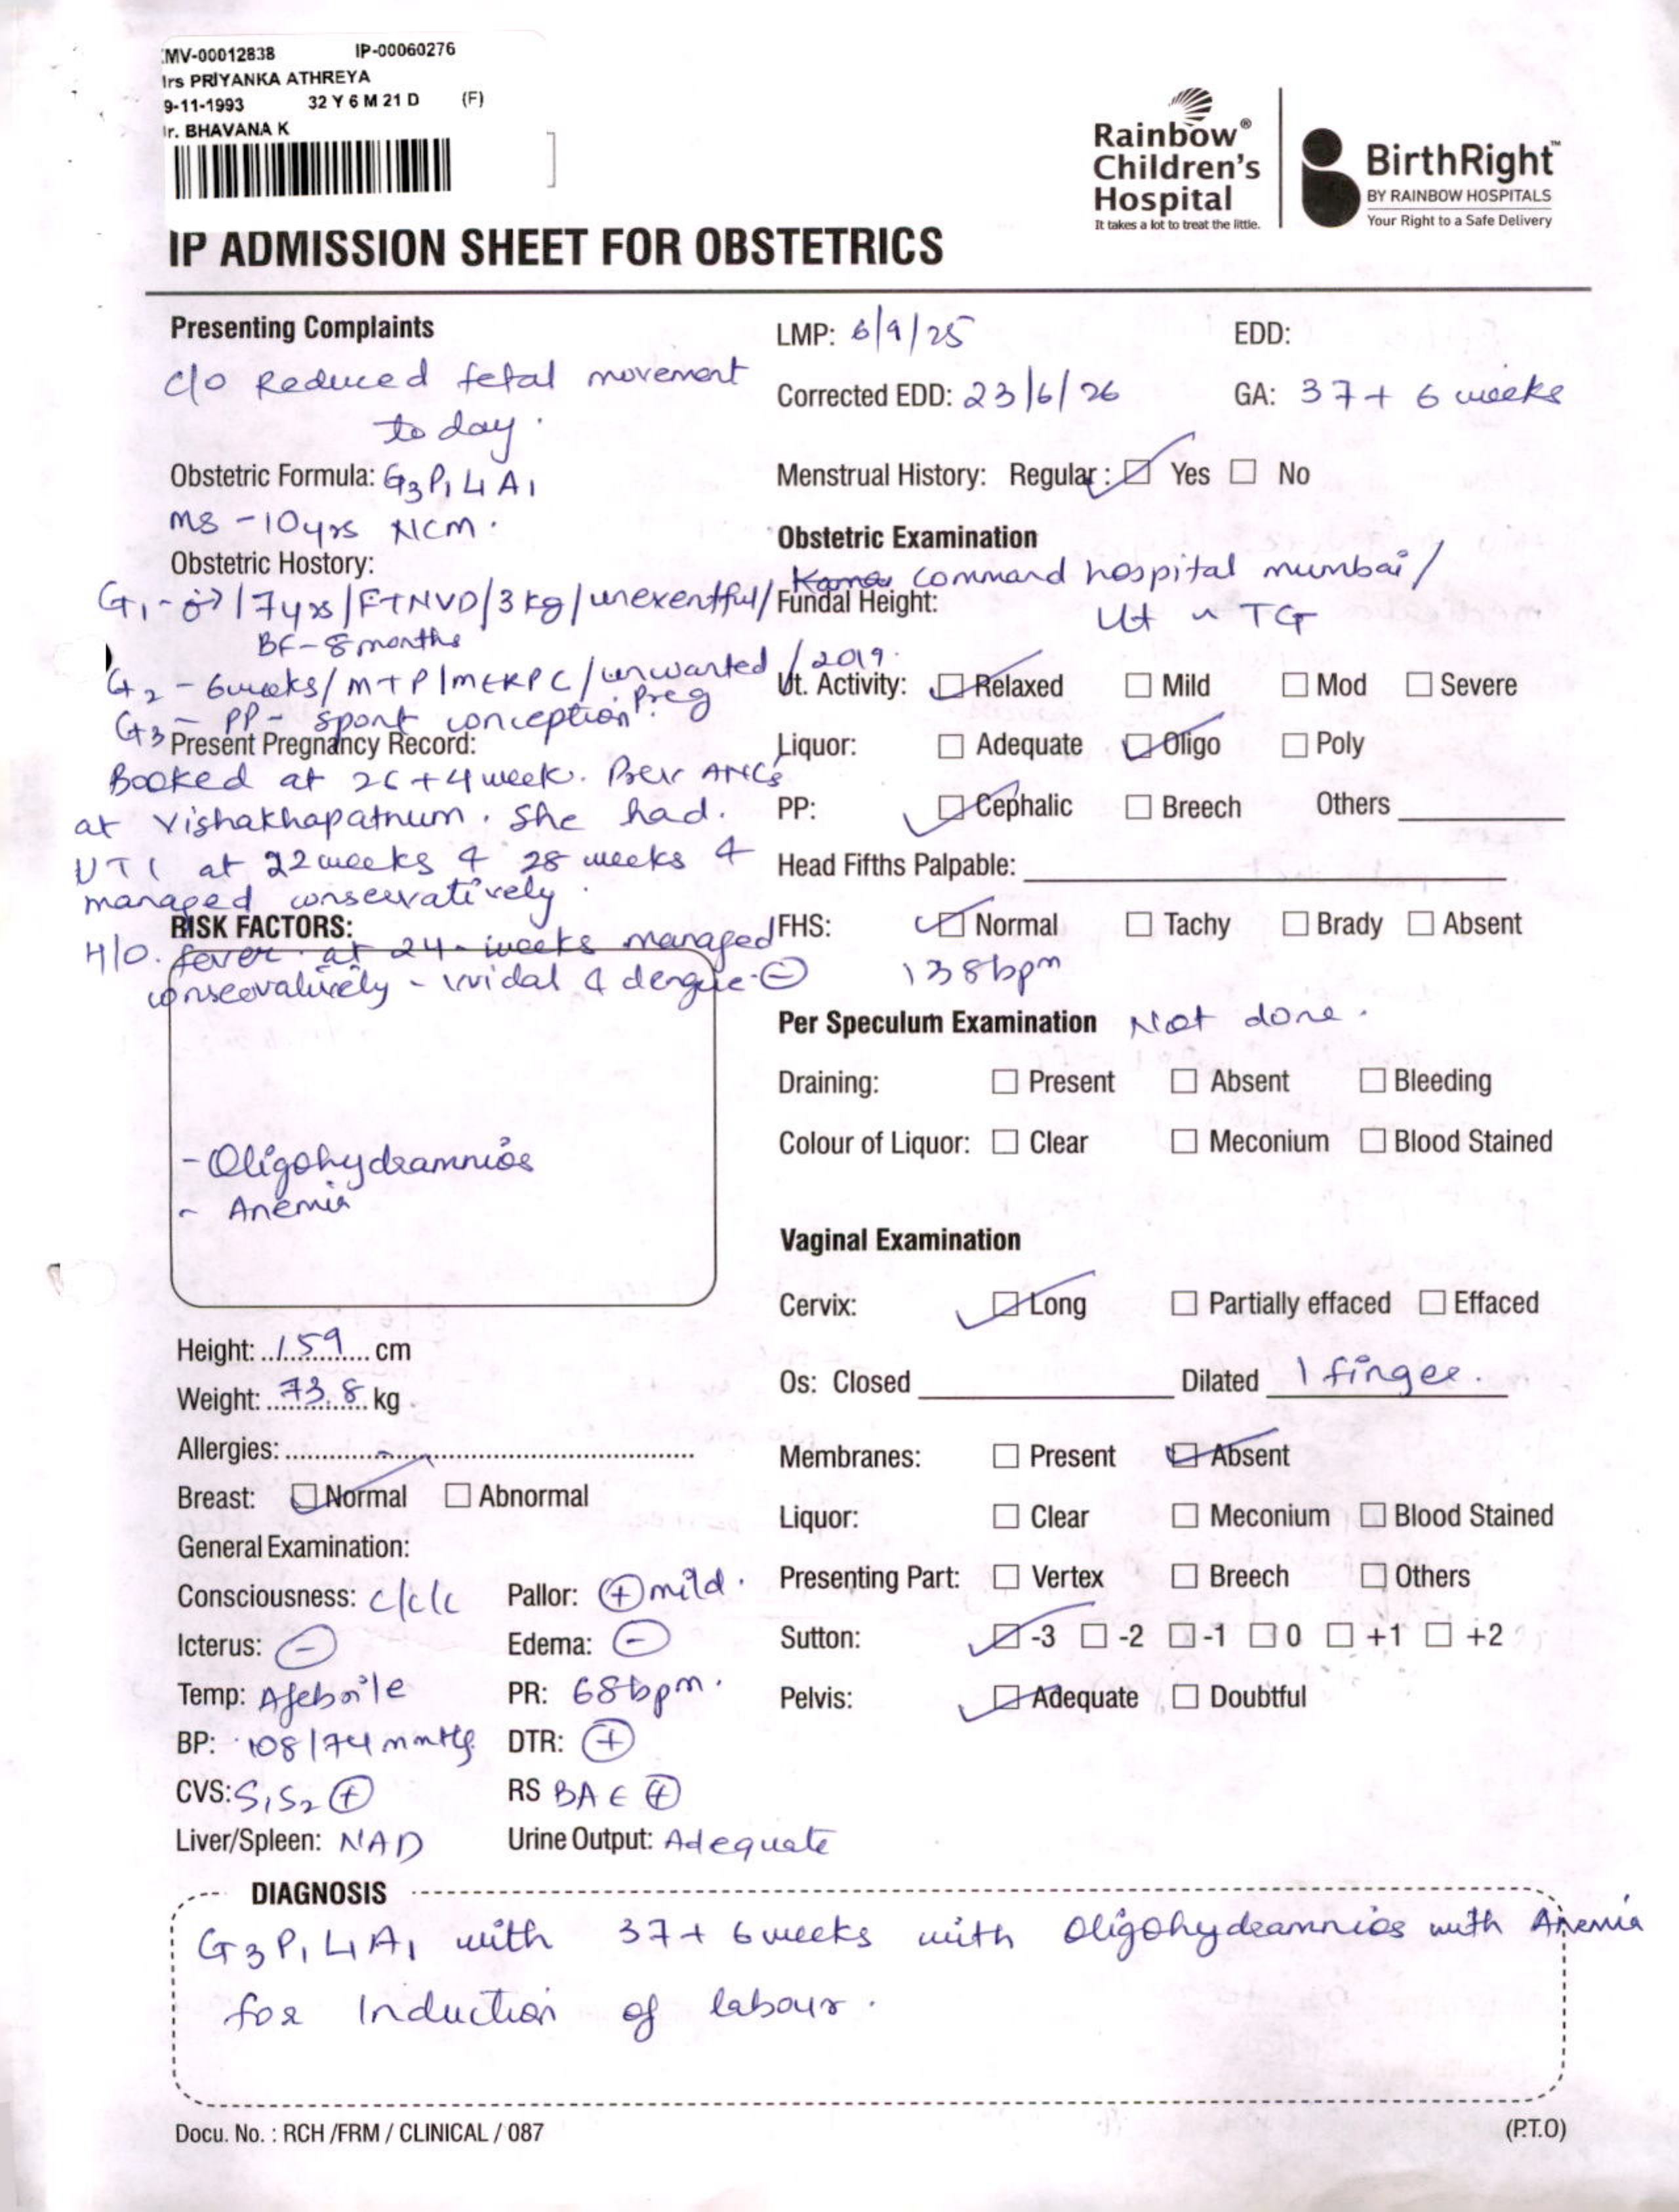 MV-00012838 IP-00060276
rs PRIYANKA ATHREYA
9-11-1993 32 Y 6 M 21 D (F)
r. BHAVANA K
Rainbow®
Children's
Hospital
It takes a lot to treat the little.
BirthRight™
BY RAINBOW HOSPITALS
Your Right to a Safe Delivery
IP ADMISSION SHEET FOR OBSTETRICS
Presenting Complaints
C/o Reduced fetal movement
today.
Obstetric Formula: G3P1L1A1
MS - 10yrs NCM.
Obstetric Hostory:
G1 - ♂ / 7yrs / FTNVD / 3kg / unexentful / command hospital mumbai /
BF - 8 months
G2 - 6weeks / MTP / MERPC / unwanted preg / 2019.
G3 - PP - spont conception
Present Pregnancy Record:
Booked at 26+4 week. Prev ANC's
at Vishakhapatnum. She had.
UTI at 22weeks & 28 weeks &
managed conservatively.
H/O. fever at 24 weeks managed
conseovatively - widal & dengue ⊖
RISK FACTORS:
- Oligohydramnios
- Anemia
Height: 159 cm
Weight: 73.8 kg
Allergies: -
Breast: ☑ Normal ☐ Abnormal
General Examination:
Consciousness: c/c/c Pallor: ⊕ mild.
Icterus: ⊖ Edema: ⊖
Temp: Afebrile PR: 68bpm.
BP: 108/74 mmHg DTR: ⊕
CVS: S1S2 ⊕ RS BAE ⊕
Liver/Spleen: NAD Urine Output: Adequate
LMP: 6/9/25 EDD:
Corrected EDD: 23/6/26 GA: 37+6 weeks
Menstrual History: Regular: ☑ Yes ☐ No
Obstetric Examination
Fundal Height: Ut ~ TG
Ut. Activity: ☑ Relaxed ☐ Mild ☐ Mod ☐ Severe
Liquor: ☐ Adequate ☑ Oligo ☐ Poly
PP: ☑ Cephalic ☐ Breech Others
Head Fifths Palpable:
FHS: ☑ Normal ☐ Tachy ☐ Brady ☐ Absent
138bpm
Per Speculum Examination Not done.
Draining: ☐ Present ☐ Absent ☐ Bleeding
Colour of Liquor: ☐ Clear ☐ Meconium ☐ Blood Stained
Vaginal Examination
Cervix: ☑ Long ☐ Partially effaced ☐ Effaced
Os: Closed Dilated 1 finger.
Membranes: ☐ Present ☑ Absent
Liquor: ☐ Clear ☐ Meconium ☐ Blood Stained
Presenting Part: ☐ Vertex ☐ Breech ☐ Others
Sutton: ☑ -3 ☐ -2 ☐ -1 ☐ 0 ☐ +1 ☐ +2
Pelvis: ☑ Adequate ☐ Doubtful
DIAGNOSIS
G3P1L1A1 with 37+6weeks with Oligohydramnios with Anemia
for Induction of labour.
Docu. No. : RCH /FRM / CLINICAL / 087
(P.T.O)